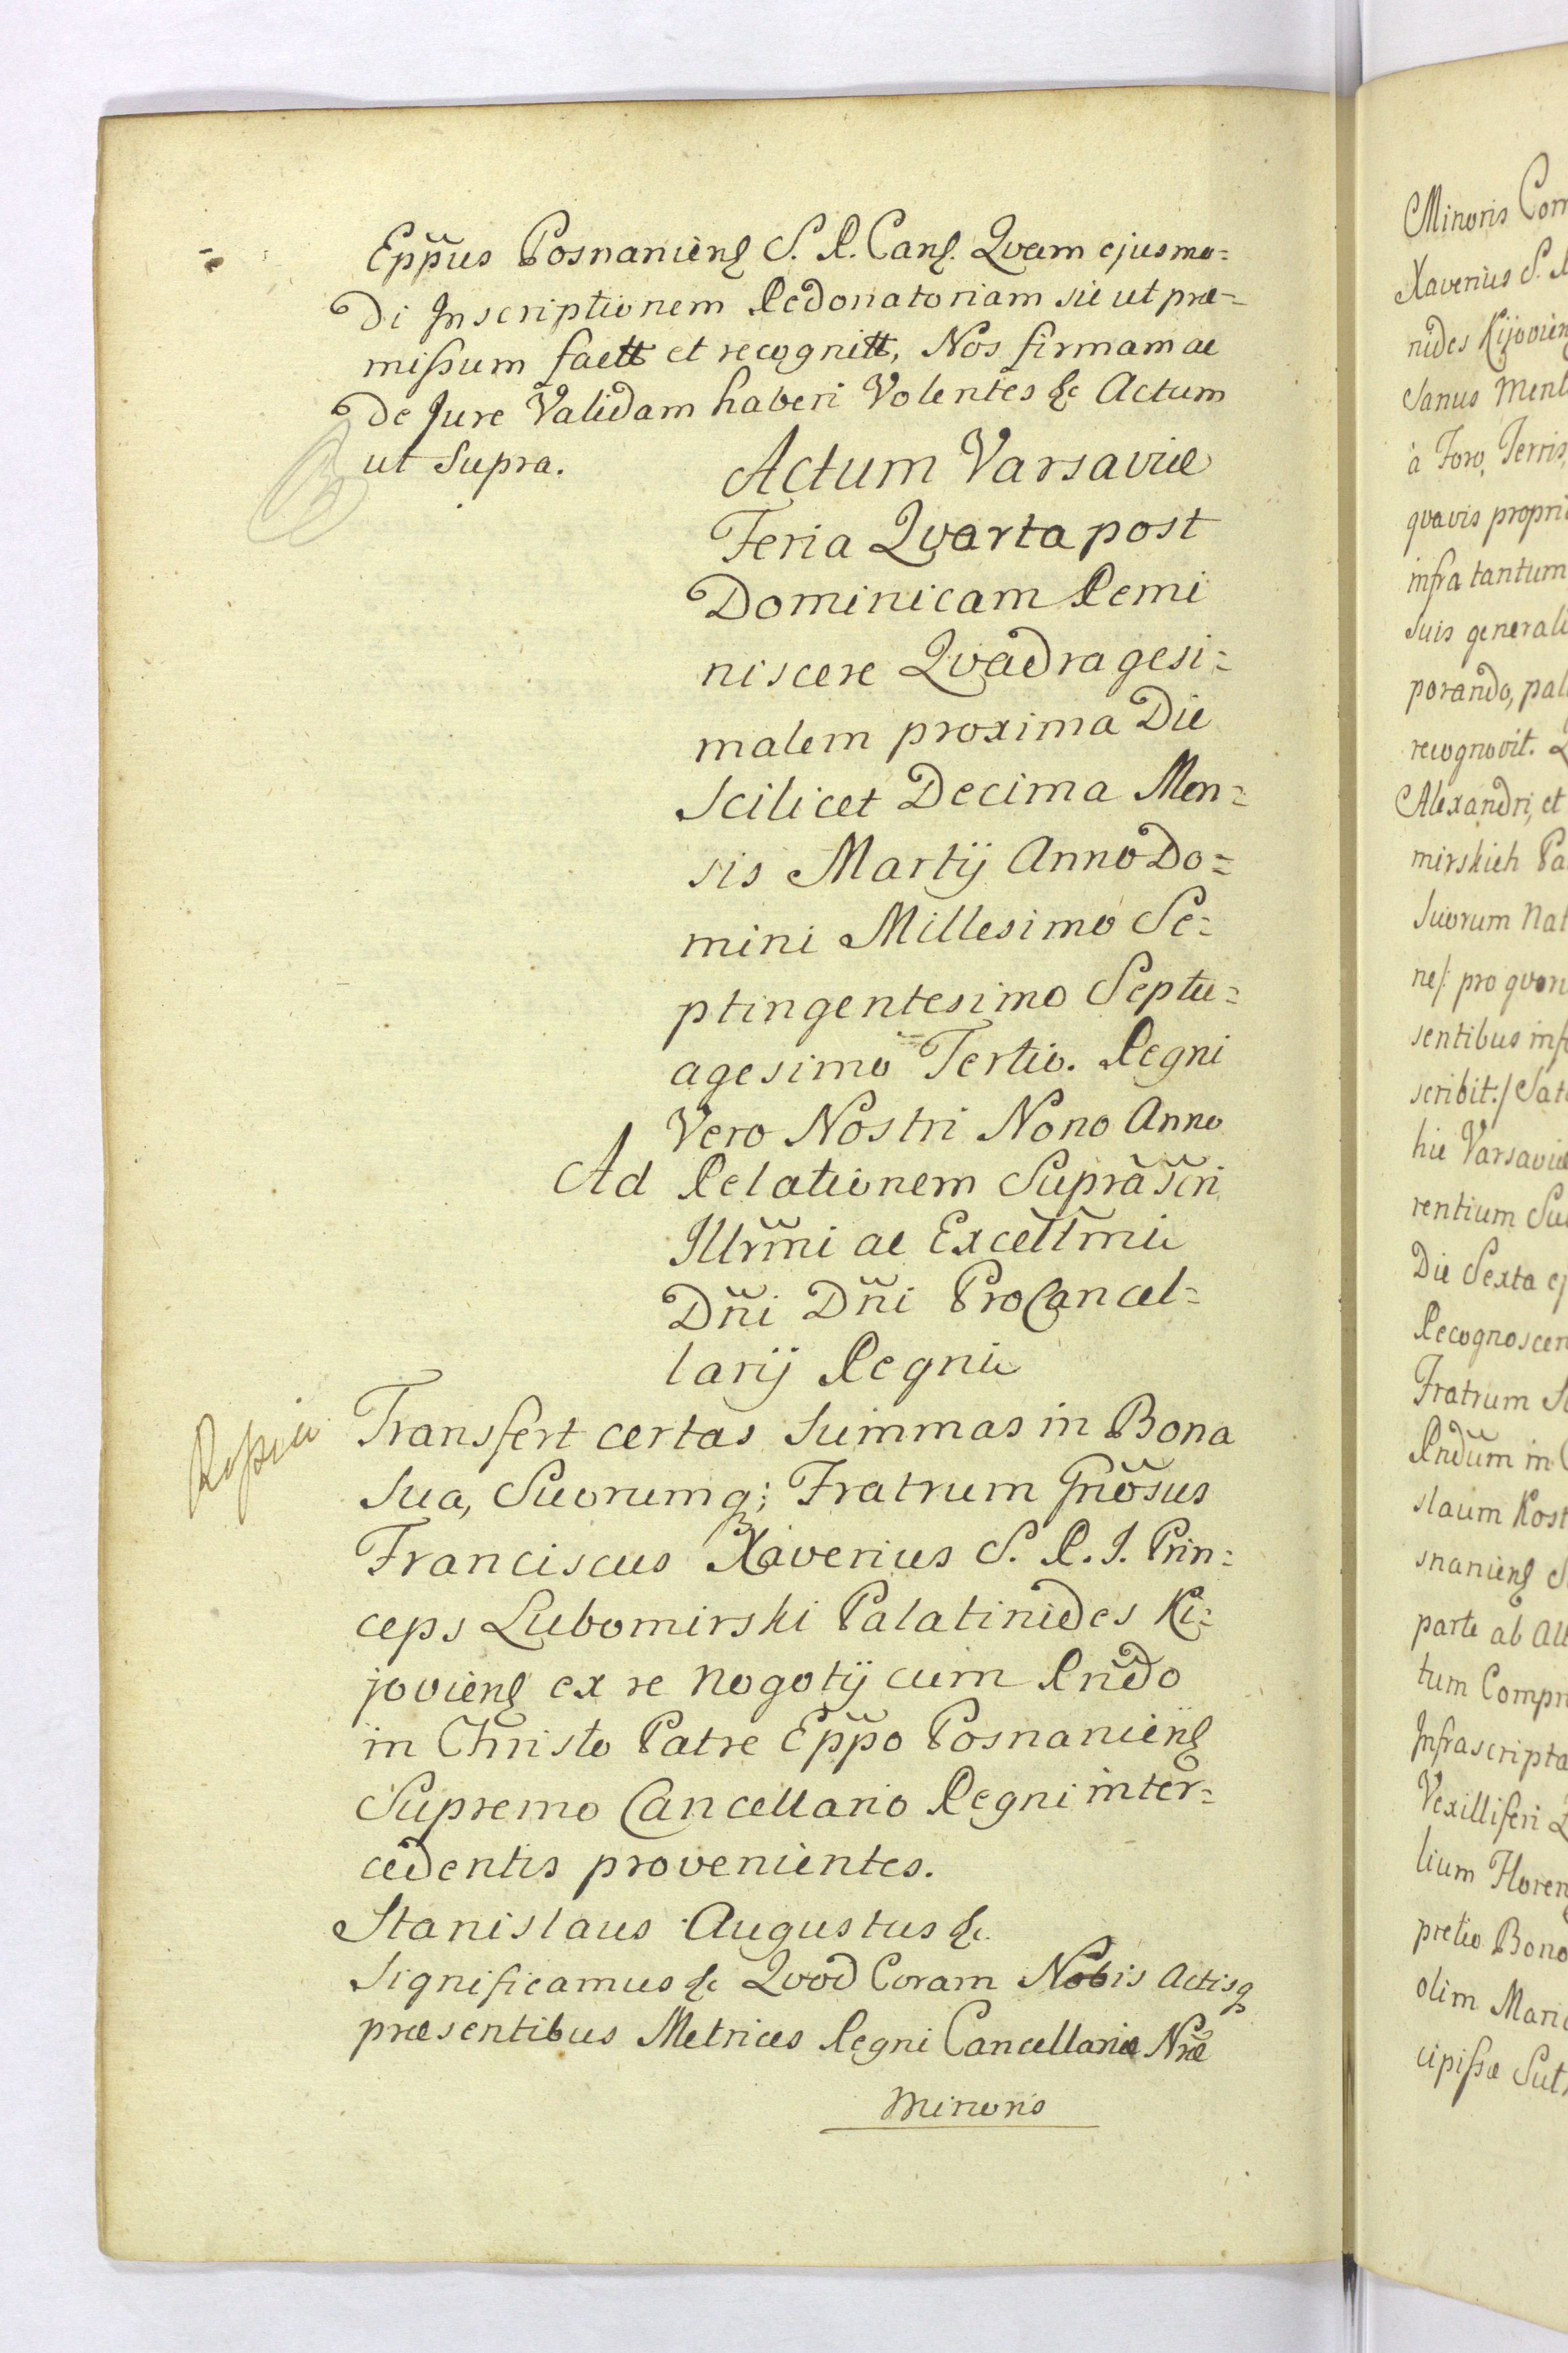 Epp̃us Posnaniens S. R. Canc. Qvam ejusmo=
di Inscriptionem Redonatoriam sic ut præ=
missum faett et recognitt, Nos firmam ac
de Jure Validam haberi Volentes &c Actum
ut Supra.
Actum Varsaviæ
Feria Qvarta post
Dominicam Remi
niscere Qvadragesi=
malem proxima Die
Scilicet Decima Men=
sis Martij Anno Do=
mini Millesimo Se=
ptingentesimo Septu=
agesimo Tertio. Regni
Vero Nostri Nono Anno
Ad Relationem Suprascri
Illr̃mi ac Excell̃mi
Dñi Dñi ProCancel=
larij Regni
Transfert certas Summas in Bona
Sua, Suorumq; Fratrum Gñosus
Franciscus Xaverius S. R. I. Prin=
ceps Lubomirski Palatinides Ki=
joviens ex re nogotij cum Rñdo
in Christo Patre Epp̃o Posnaniens
Supremo Cancellario Regni inter=
cedentis provenientes.
Stanislaus Augustus &c
Significamus &c Qvod Coram Nobis Actisq
præsentibus Metrices Regni Cancellariæ Nræ
Minoris
Minoris
Xaverius S.
nides Kijoviens
Sanus
à Foro, Terris,
qvavis
infra tantum
Suis
porando,
recognovit.
Alexandri, et
mirskich
Suorum
pro
sentibus
scribit./
hic Varsaviæ
rentium
Die Sexta
Fratrum
Rñdum in
slaum
snaniens
parte ab
tum
Infrascripta
Vexilliferi
lium
pretio
olim
cipissæ